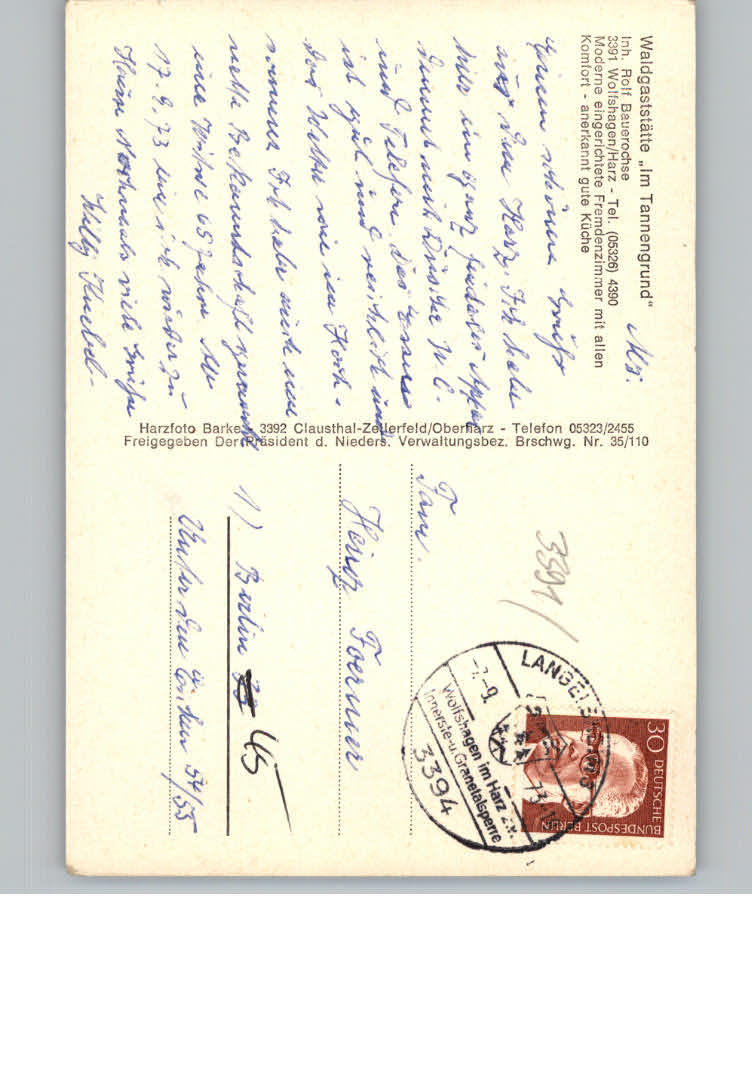 Waldgaststätte „Im Tannengrund“
Inh. Rolf Bauerochse
3391 Wolfshagen/Harz - Tel. (05326) 4390
Moderne eingerichtete Fremdenzimmer mit allen
Komfort - anerkannt gute Küche
Einen schönen Gruß
aus dem Harz. Ich habe
hier ein ganz
mit Dusche W.C.
und Telefon. Das Essen
ist gut und reichlich und
das Wetter wie im Hoch-
sommer. Ich habe auch eine
nette Bekanntschaft gemacht
eine Witwe 65 Jahre. Am
17.9.73 bin ich wieder zu
Hause. Nochmals viele Grüße
Willy
Harzfoto Barke, 3392 Clausthal-Zellerfeld/Oberharz - Telefon 05323/2455
Freigegeben Der Präsident d. Nieders. Verwaltungsbez. Brschwg. Nr. 35/110
3391
30 DEUTSCHE
BUNDESPOST BERLIN
LANGELSHEIM
-7.-9.73
Wolfshagen im Harz
Innerste-u.Granetalsperre
3394
Fam.
Heinz Foerner
1) Berlin 45
Unter den Eichen 54/55